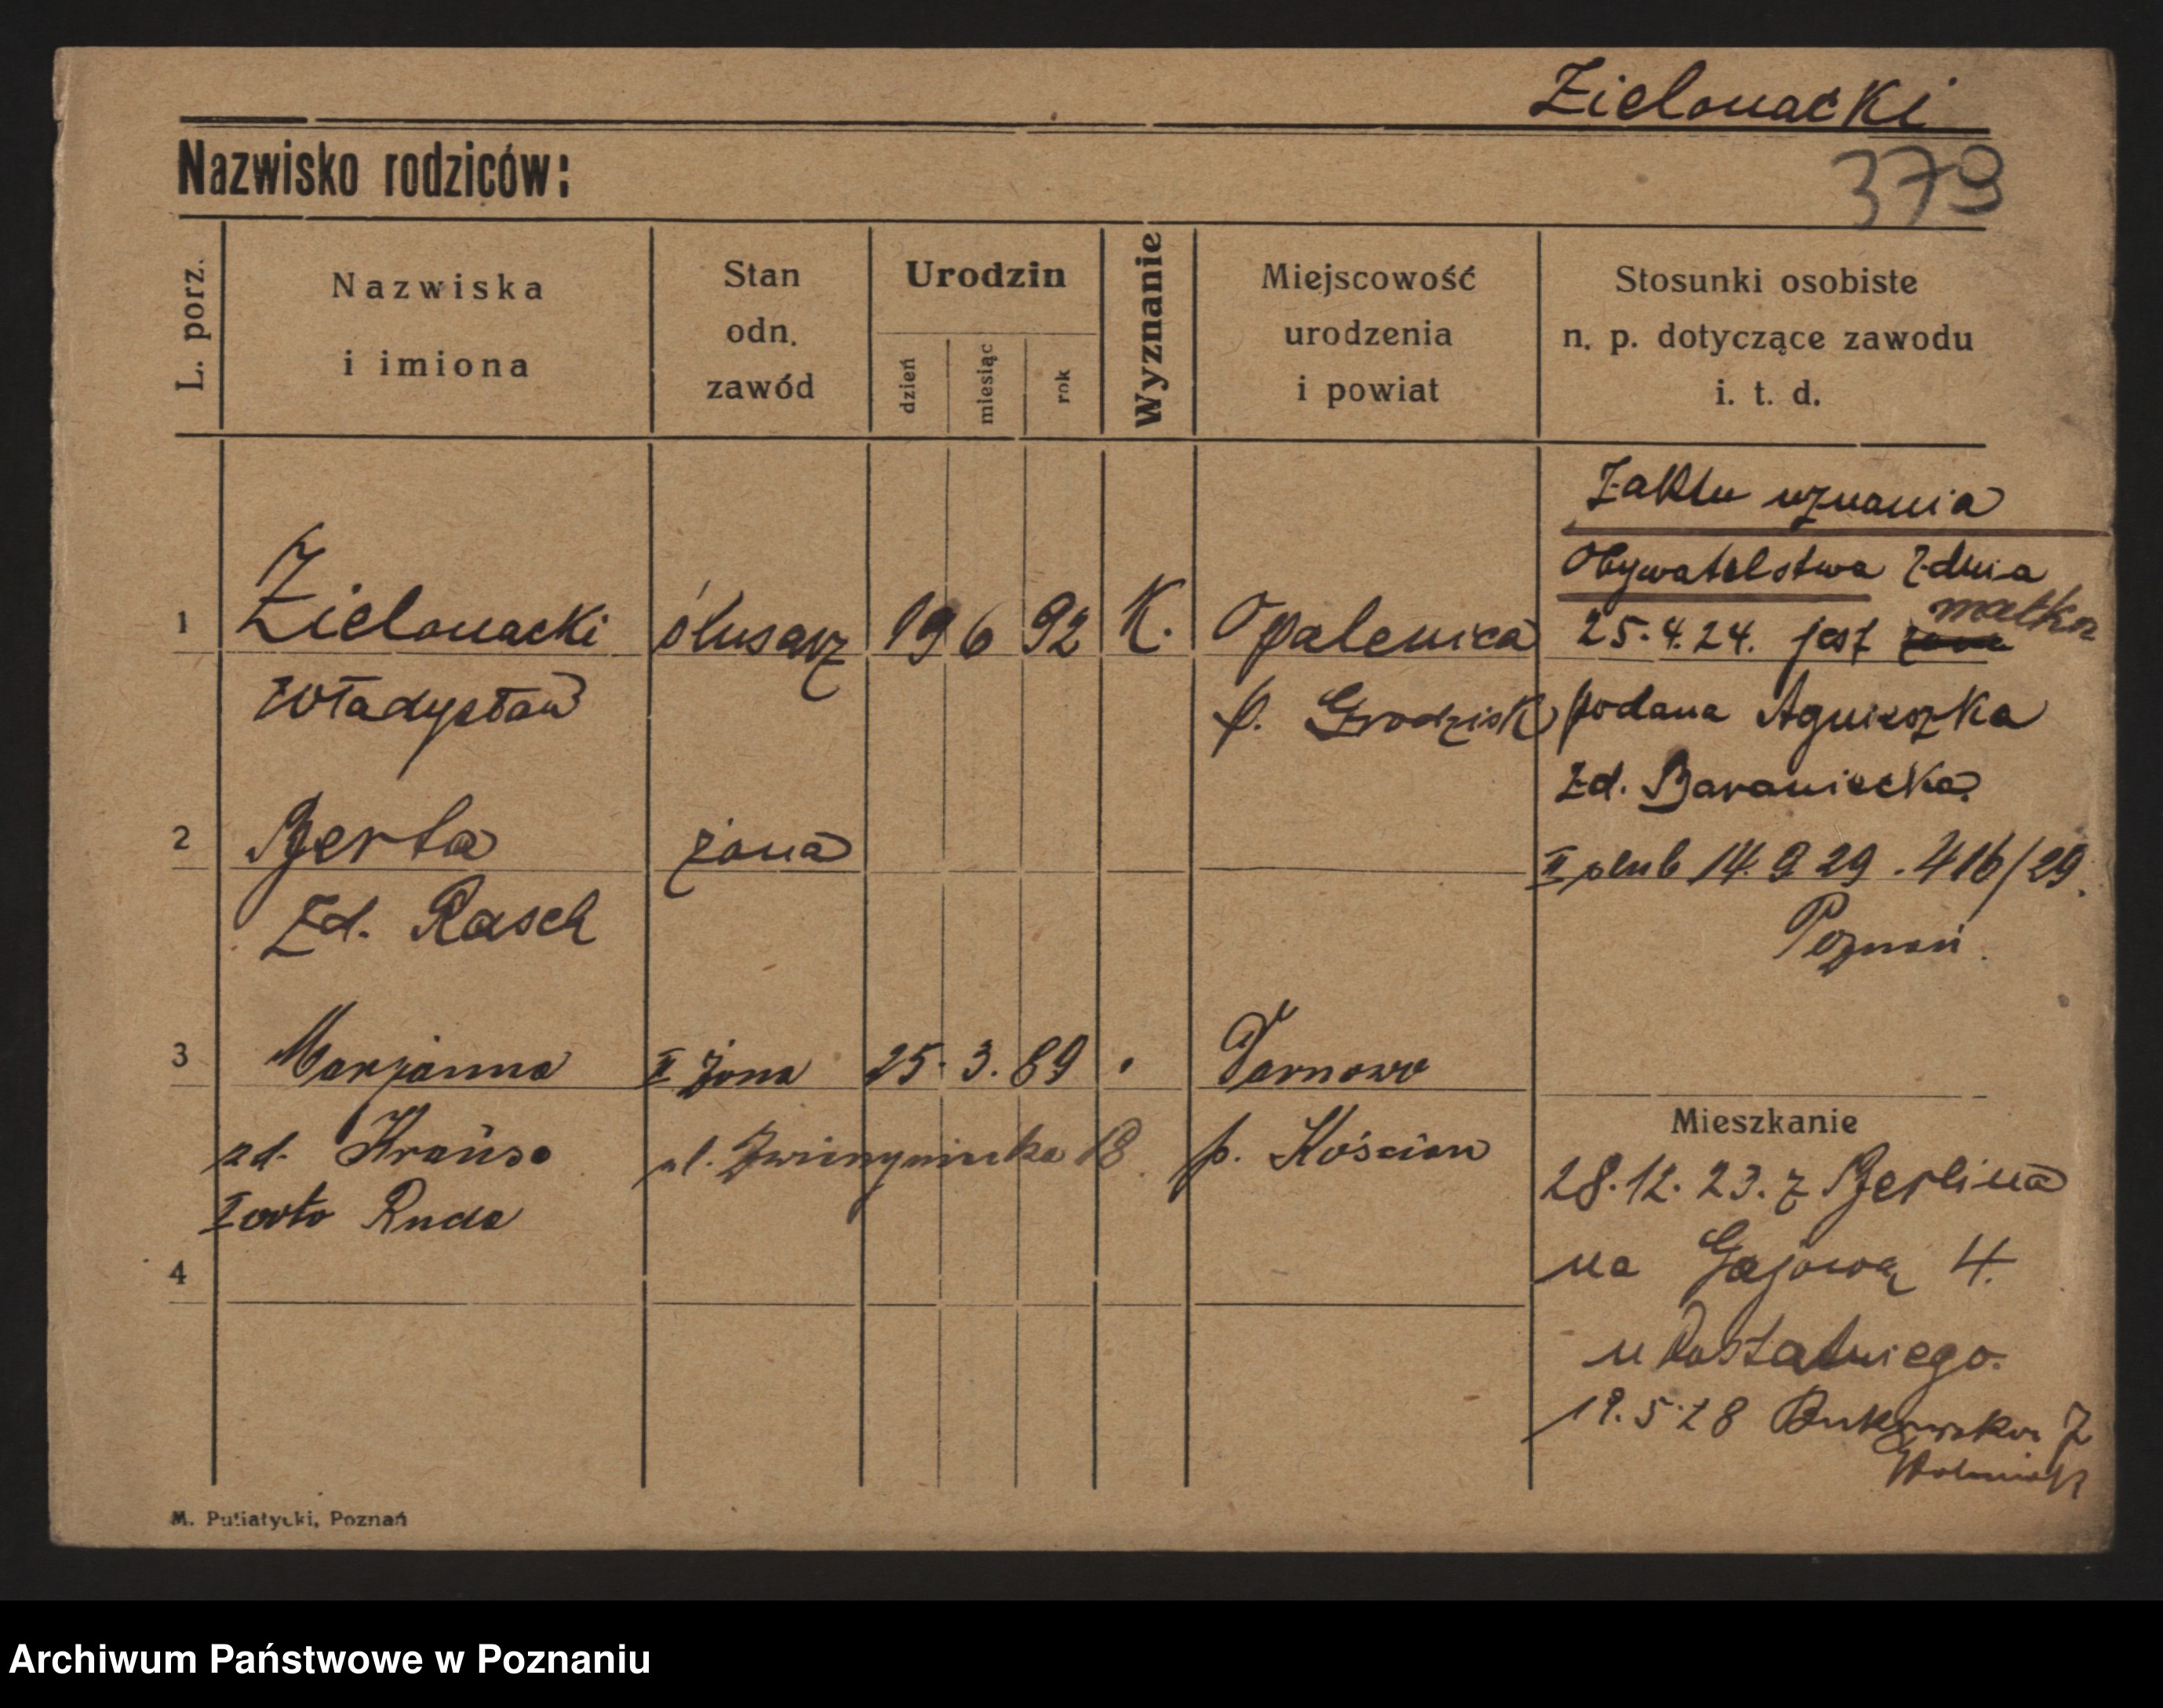 Zielonacki
Nazwisko rodziców:
379
L. porz.
Nazwiska
i imiona
Stan
odn.
zawód
Urodzin
dzień
miesiąc
rok
Wyznanie
Miejscowość
urodzenia
i powiat
Stosunki osobiste
n. p. dotyczące zawodu
i. t. d.
Z aktu uznania
Obywatelstwa z dnia
25.4.24. jest matka
podana Agnieszka
zd. Baraniecka.
II ślub 14.9 29. 416/29.
Poznań.
1 Zielonacki ślusarz 19 6 92 K. Opalenica
Władysław p. Grodzisk
2 Berta żona
zd. Rasch
3 Marjanna II żona 25. 3. 89 Tarnowo
zd. ul. 18 p. Kościan
I voto Ruda
4
Mieszkanie
28.12.23. z Berlina
na Gajową 4.
u
19.5.28 Bukowska
M. Putiatycki, Poznań
Archiwum Państwowe w Poznaniu